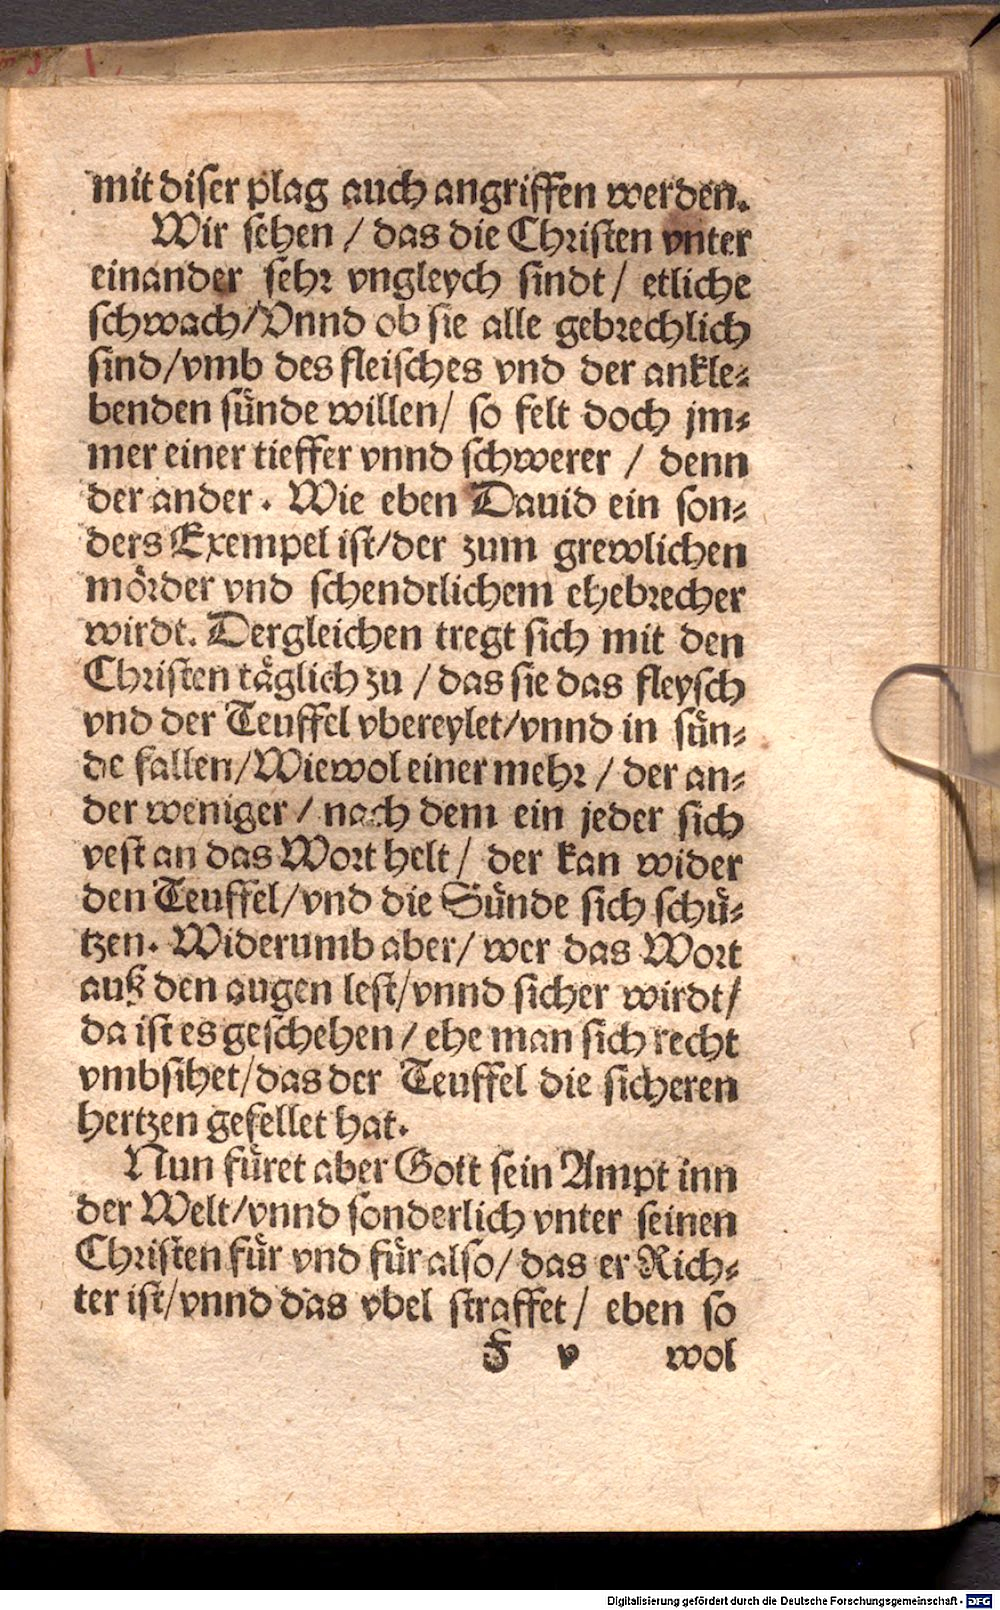 mit diser plag auch angriffen werden.
Wir sehen / das die Christen vnter
einander sehr vngleych sindt / etliche
schwach/Vnnd ob sie alle gebrechlich
sind/vmb des fleisches vnd der ankle-
benden sünde willen/ so felt doch jm-
mer einer tieffer vnnd schwerer / denn
der ander. Wie eben Dauid ein son-
ders Exempel ist/der zum grewlichen
mörder vnd schendtlichem ehebrecher
wirdt. Dergleichen tregt sich mit den
Christen täglich zu / das sie das fleysch
vnd der Teuffel vbereylet/vnnd in sün-
de fallen/Wiewol einer mehr / der an-
der weniger / nach dem ein jeder sich
vest an das Wort helt / der kan wider
den Teuffel/vnd die Sünde sich schü-
tzen. Widerumb aber/ wer das Wort
auß den augen lest/vnnd sicher wirdt/
da ist es geschehen / ehe man sich recht
vmbsihet/das der Teuffel die sicheren
hertzen gefellet hat.
Nun füret aber Gott sein Ampt inn
der Welt/vnnd sonderlich vnter seinen
Christen für vnd für also/ das er Rich-
ter ist/vnnd das vbel straffet / eben so
F v wol
Digitalisierung gefördert durch die Deutsche Forschungsgemeinschaft - DFG